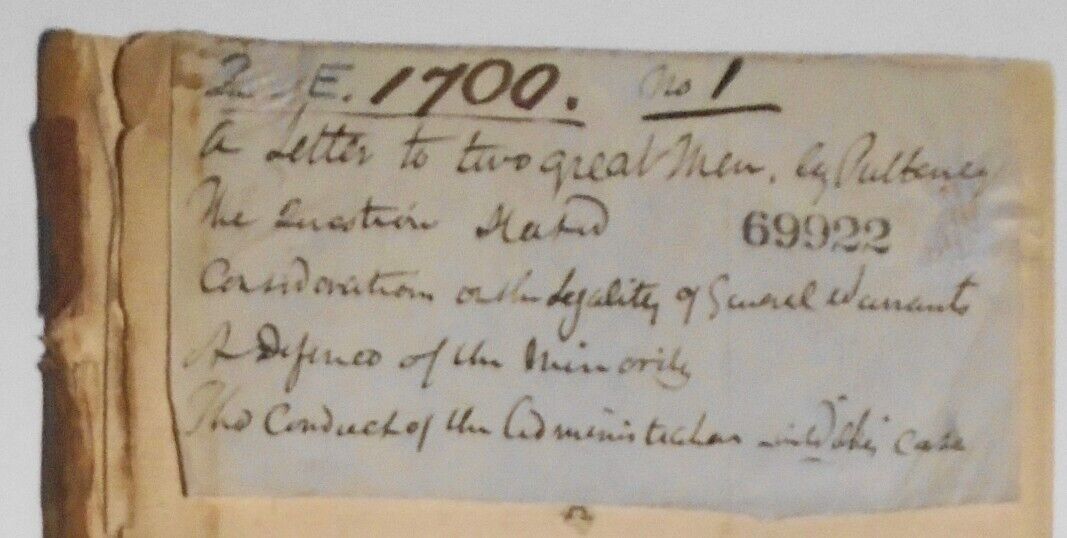 E. 1700. No 1
A Letter to two great Men. by Pulteney
The Question Stated 69922
Considerations on the Legality of General Warrants
A Defence of the Minority
The Conduct of the Administration case